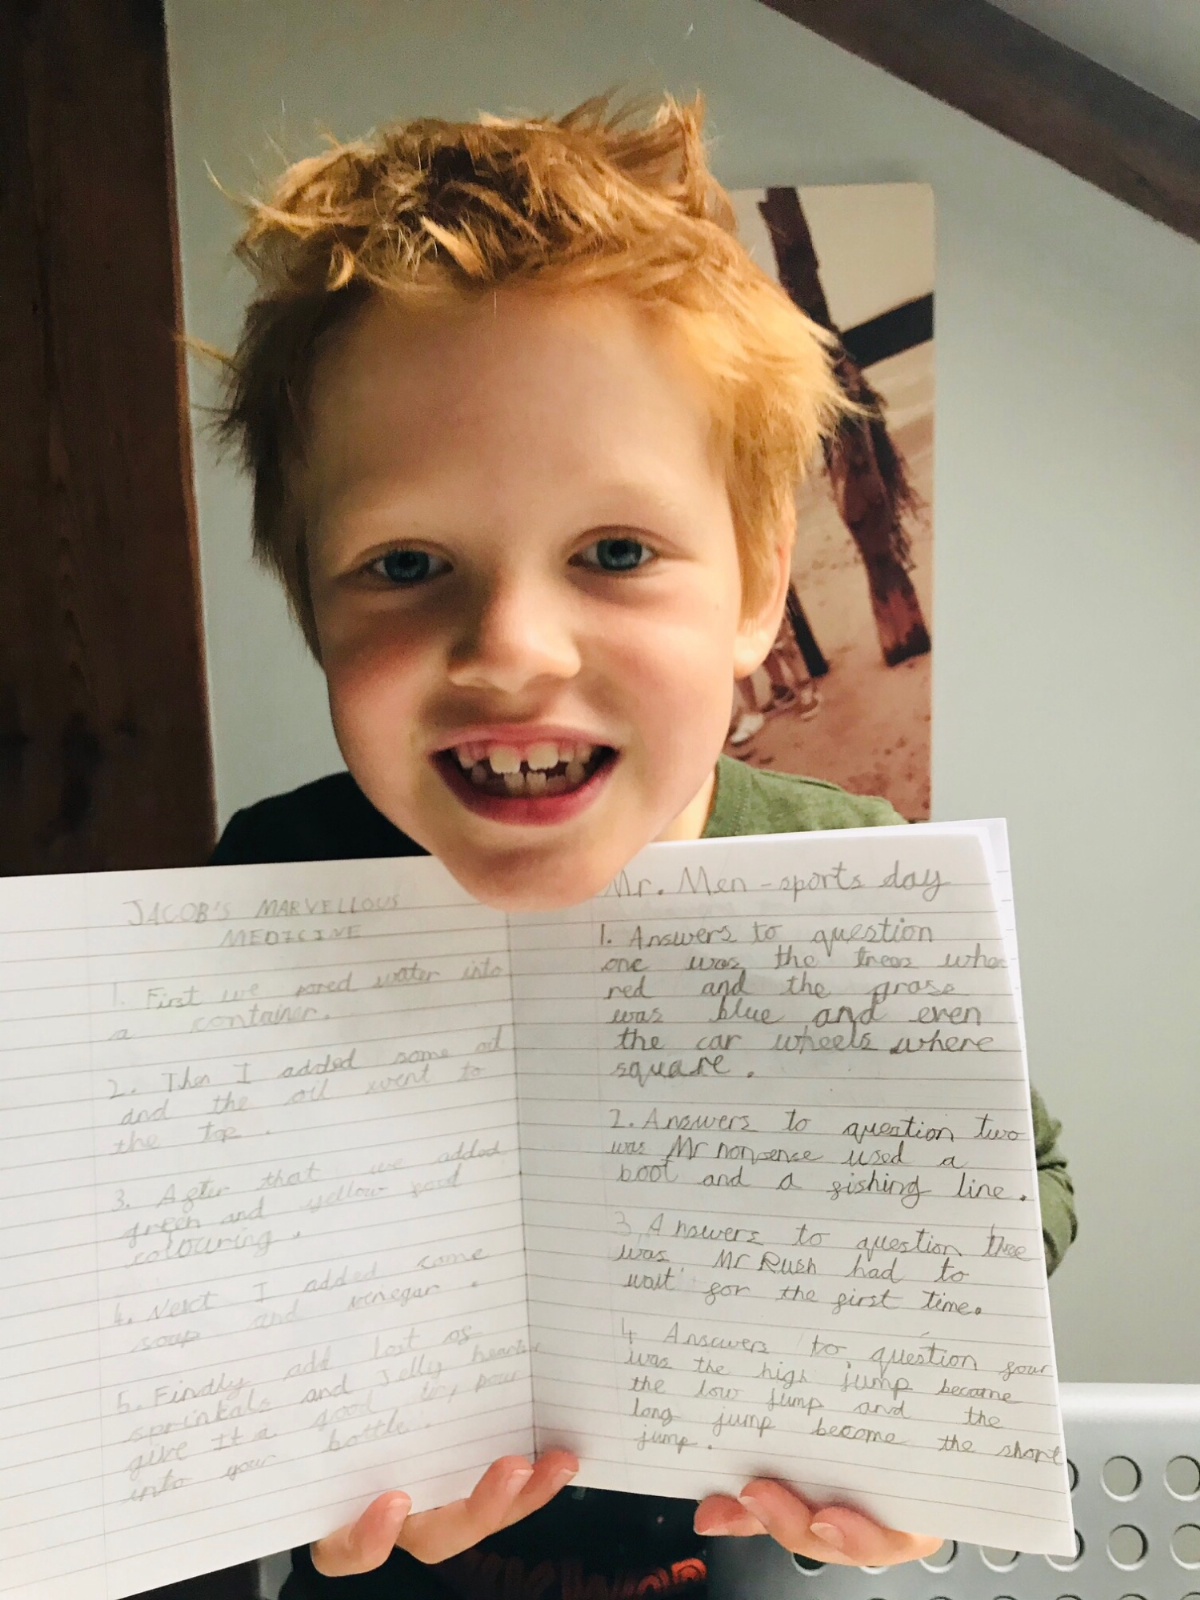 JACOB'S MARVELLOUS
MEDICINE
1. First we pored water into
a container.
2. Then I added some oil
and the oil went to
the top.
3. After that we added
green and yellow food
colouring.
4. Next I added some
soap and vinegar.
5. Finally add lost of
sprinkals and Jelly
give it a good
into your bottle.
Mr. Men - sports day
1. Answers to question
one was the trees wher
red and the grass
was blue and even
the car wheels where
square.
2. Answers to question two
was Mr nonsense used a
boot and a fishing line.
3. Answers to question thee
was Mr Rush had to
wait for the first time.
4 Answers to question four
was the high jump become
the low jump and the
long jump become the short
jump.